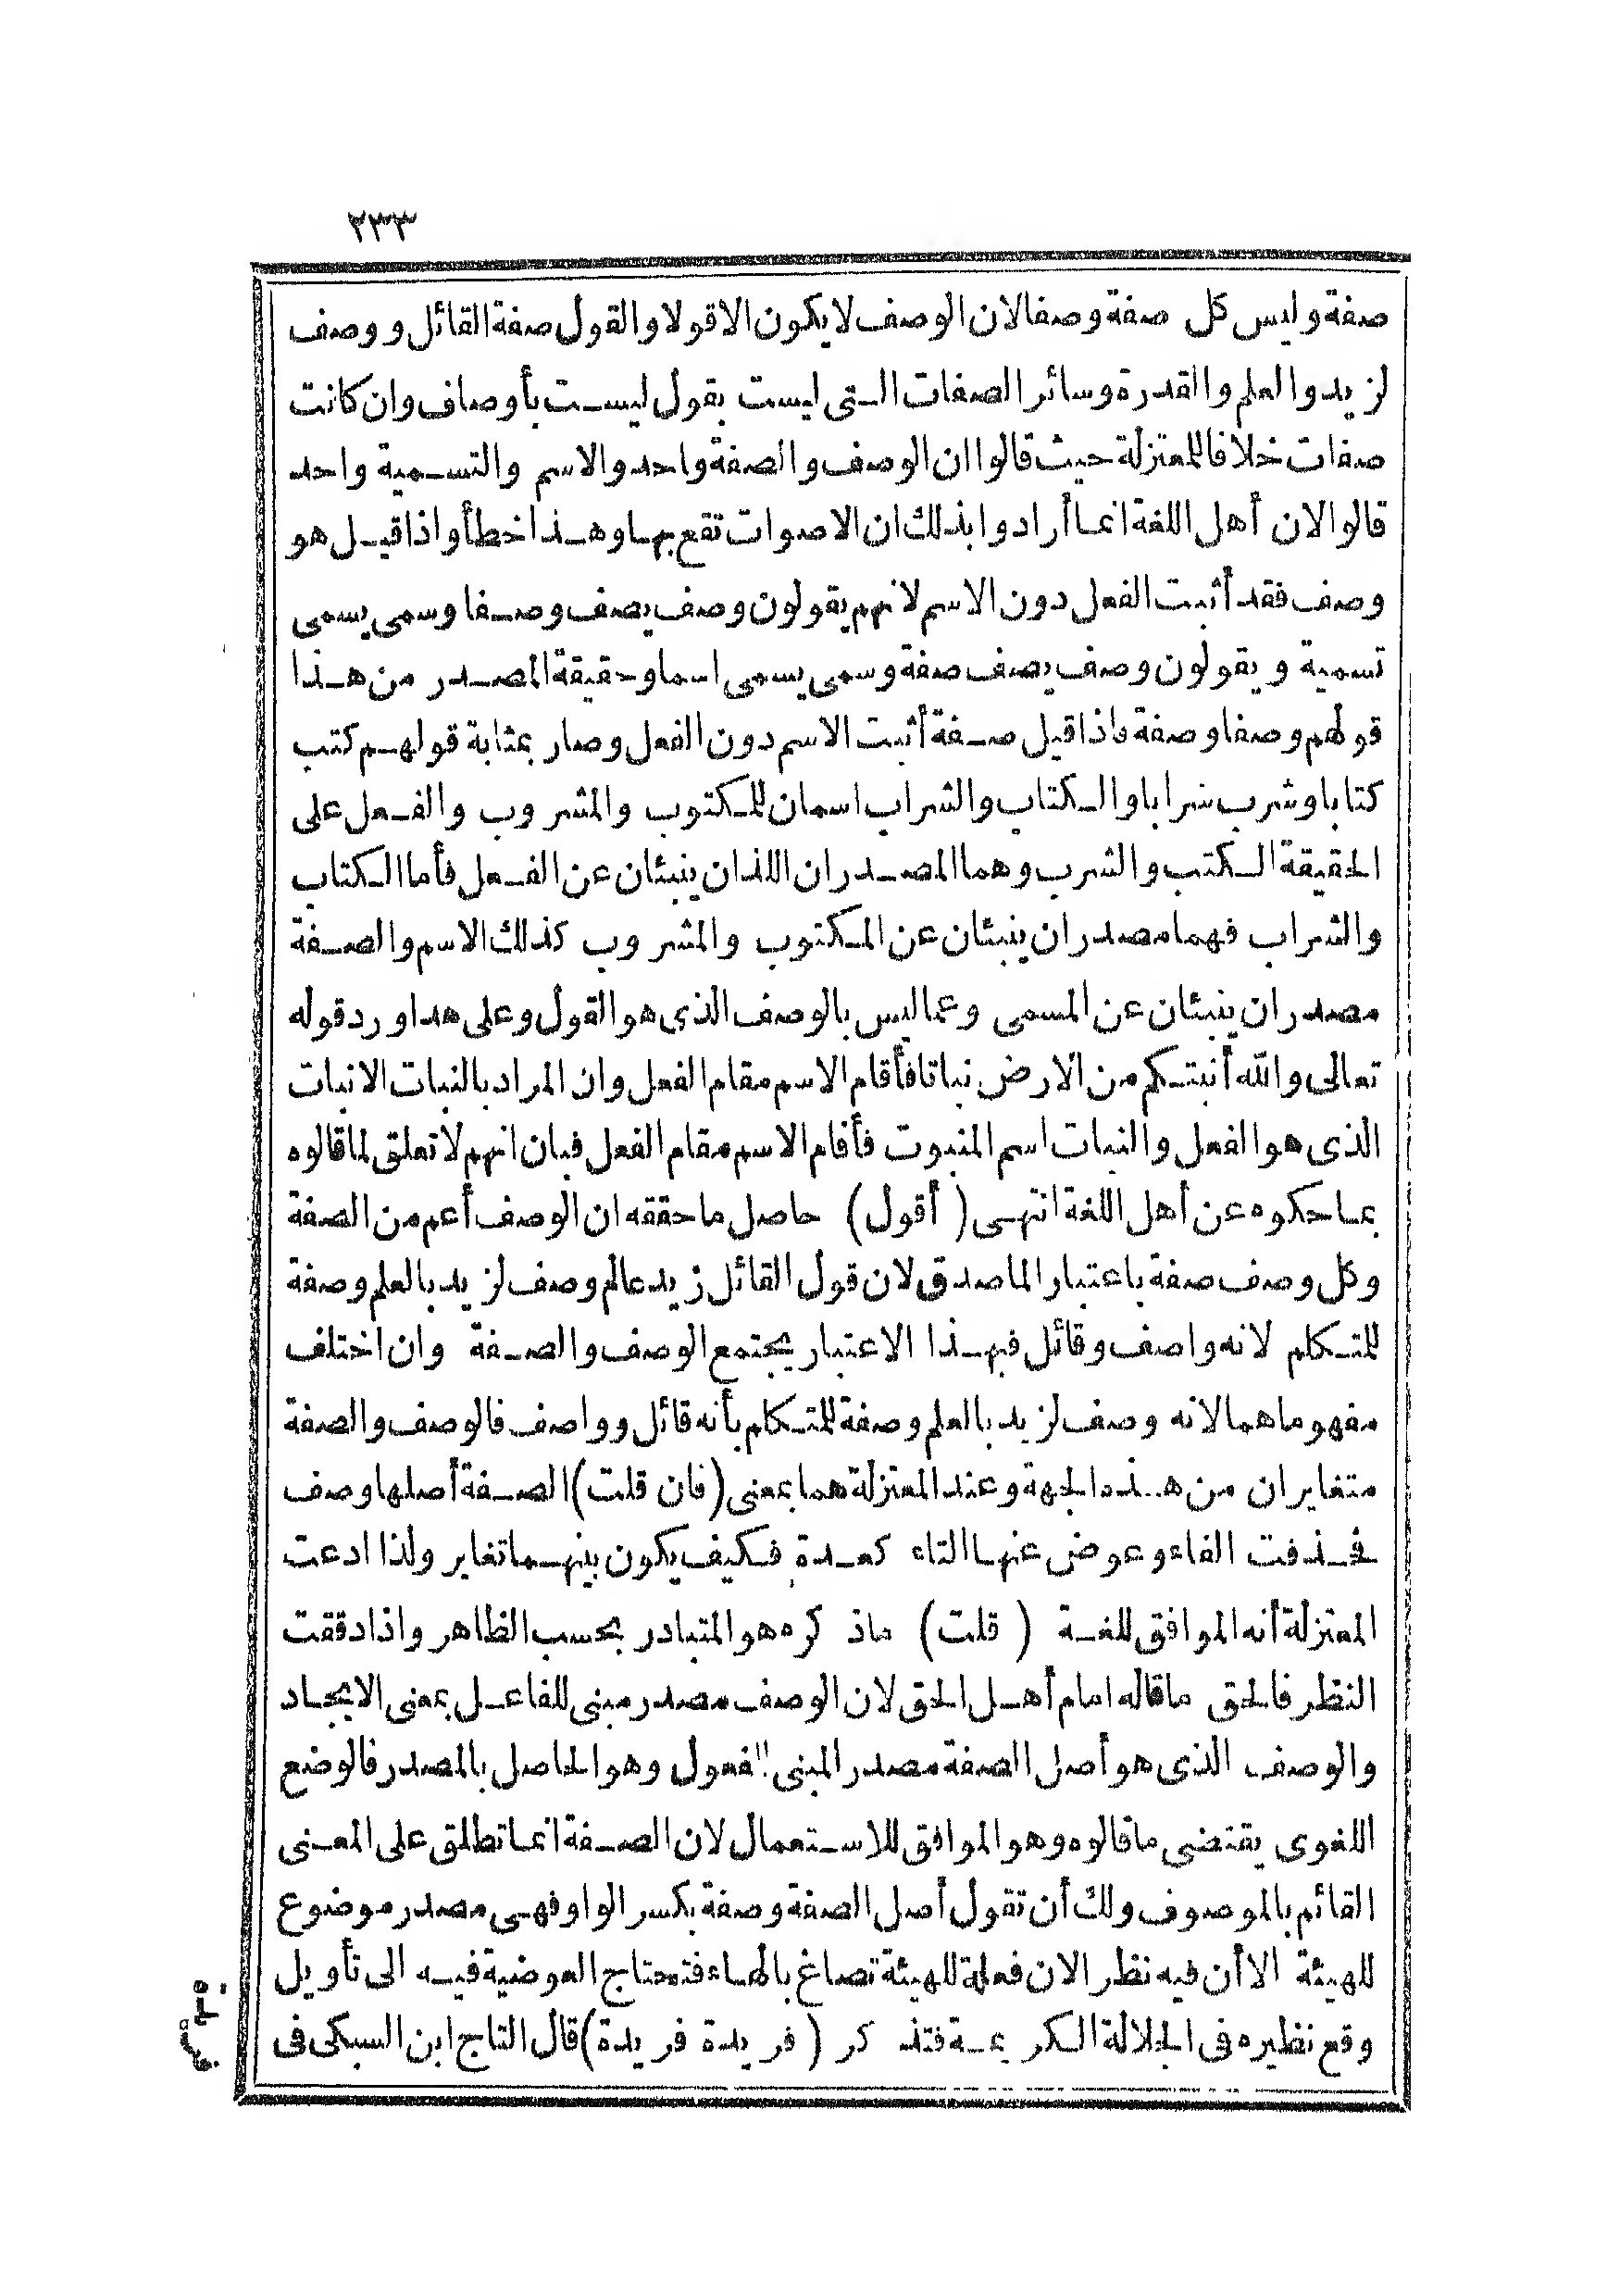 ٢٣٣
صفة وليس كل صفة وصفا لان الوصف لا يكون الا قولا والقول صفة القائل ووصف
لزيد والعلم والقدرة وسائر الصفات التى ليست بقول ليست بأوصاف وان كانت
صفات خلافا للمعتزلة حيث قالوا ان الوصف والصفة واحد والاسم والتسمية واحد
قالوا لان أهل اللغة انما أرادوا بذلك ان الاصوات تقع بها وهذا خطأ واذا قيل هو
وصف فقد أثبت الفعل دون الاسم لانهم يقولون وصف يصف وصفا وسمى يسمى
تسمية ويقولون وصف يصف صفة وسمى يسمى اسما وحقيقة المصدر من هذا
قولهم وصفا وصفة فاذا قيل صفة أثبت الاسم دون الفعل وصار بمثابة قولهم كتب
كتابا وشرب شرابا والكتاب والشراب اسمان للمكتوب والمشروب والفعل على
الحقيقة الكتب والشرب وهما المصدران اللذان ينبئان عن الفعل فأما الكتاب
والشراب فهما مصدران ينبئان عن المكتوب والمشروب كذلك الاسم والصفة
مصدران ينبئان عن المسمى وعما ليس بالوصف الذى هو القول وعلى هذا ورد قوله
تعالى والله أنبتكم من الارض نباتا فأقام الاسم مقام الفعل وان المراد بالنبات الانبات
الذى هو الفعل والنبات اسم المنبوت فأقام الاسم مقام الفعل فبان انهم لا تعلق لما قالوه
بما حكوه عن أهل اللغة انتهى (أقول) حاصل ما حققه ان الوصف أعم من الصفة
وكل وصف صفة باعتبار الماصدق لان قول القائل زيد عالم وصف لزيد بالعلم وصفة
للمتكلم لانه واصف وقائل فبهذا الاعتبار يجتمع الوصف والصفة وان اختلف
مفهوماهما لانه وصف لزيد بالعلم وصفة للمتكلم بأنه قائل وواصف فالوصف والصفة
متغايران من هذه الجهة وعند المعتزلة هما بمعنى (فان قلت) الصفة أصلها وصف
فحذفت الفاء وعوض عنها التاء كعدة فكيف يكون بينهما تغاير ولذا ادعت
المعتزلة أنه الموافق للغة (قلت) ماذكره هو المتبادر بحسب الظاهر واذا دققت
النظر فالحق ما قاله امام أهل الحق لان الوصف مصدر مبنى للفاعل بمعنى الايجاد
والوصف الذى هو أصل الصفة مصدر المبنى للمفعول وهو الحاصل بالمصدر فالوضع
اللغوى يقتضى ما قالوه وهو الموافق للاستعمال لان الصفة انما تطلق على المعنى
القائم بالموصوف ولك أن تقول أصل الصفة وصفة بكسر الواو فهى مصدر موضوع
للهيئة الا أن فيه نظر الان فعلة للهيئة تصاغ بالهاء فتحتاج العوضية فيه الى تأويل
وقع نظيره فى الجلالة الكريمة فتذكر (فريدة فريدة) قال التاج ابن السبكى فى
فريدة